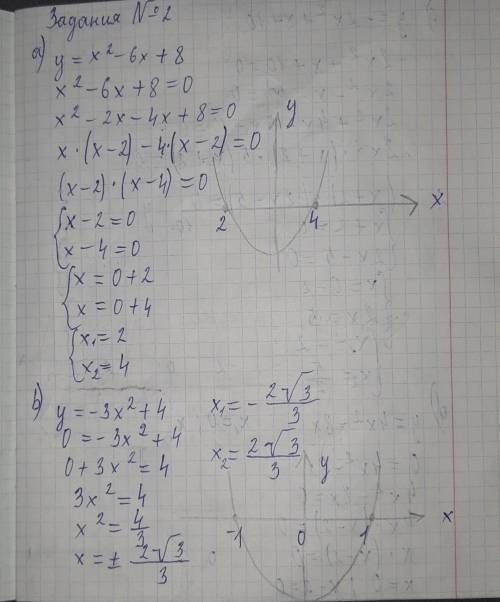 Задания №2
a) y = x² - 6x + 8
x² - 6x + 8 = 0
x² - 2x - 4x + 8 = 0
x · (x - 2) - 4 · (x - 2) = 0
(x - 2) · (x - 4) = 0
{ x - 2 = 0
x - 4 = 0
{ x = 0 + 2
x = 0 + 4
{ x₁ = 2
x₂ = 4
y
x
2 4
b) y = -3x² + 4
0 = -3x² + 4
0 + 3x² = 4
3x² = 4
x² = 4/3
x = ± 2√3/3
x₁ = - 2√3/3
x₂ = 2√3/3
y
x
-1 0 1